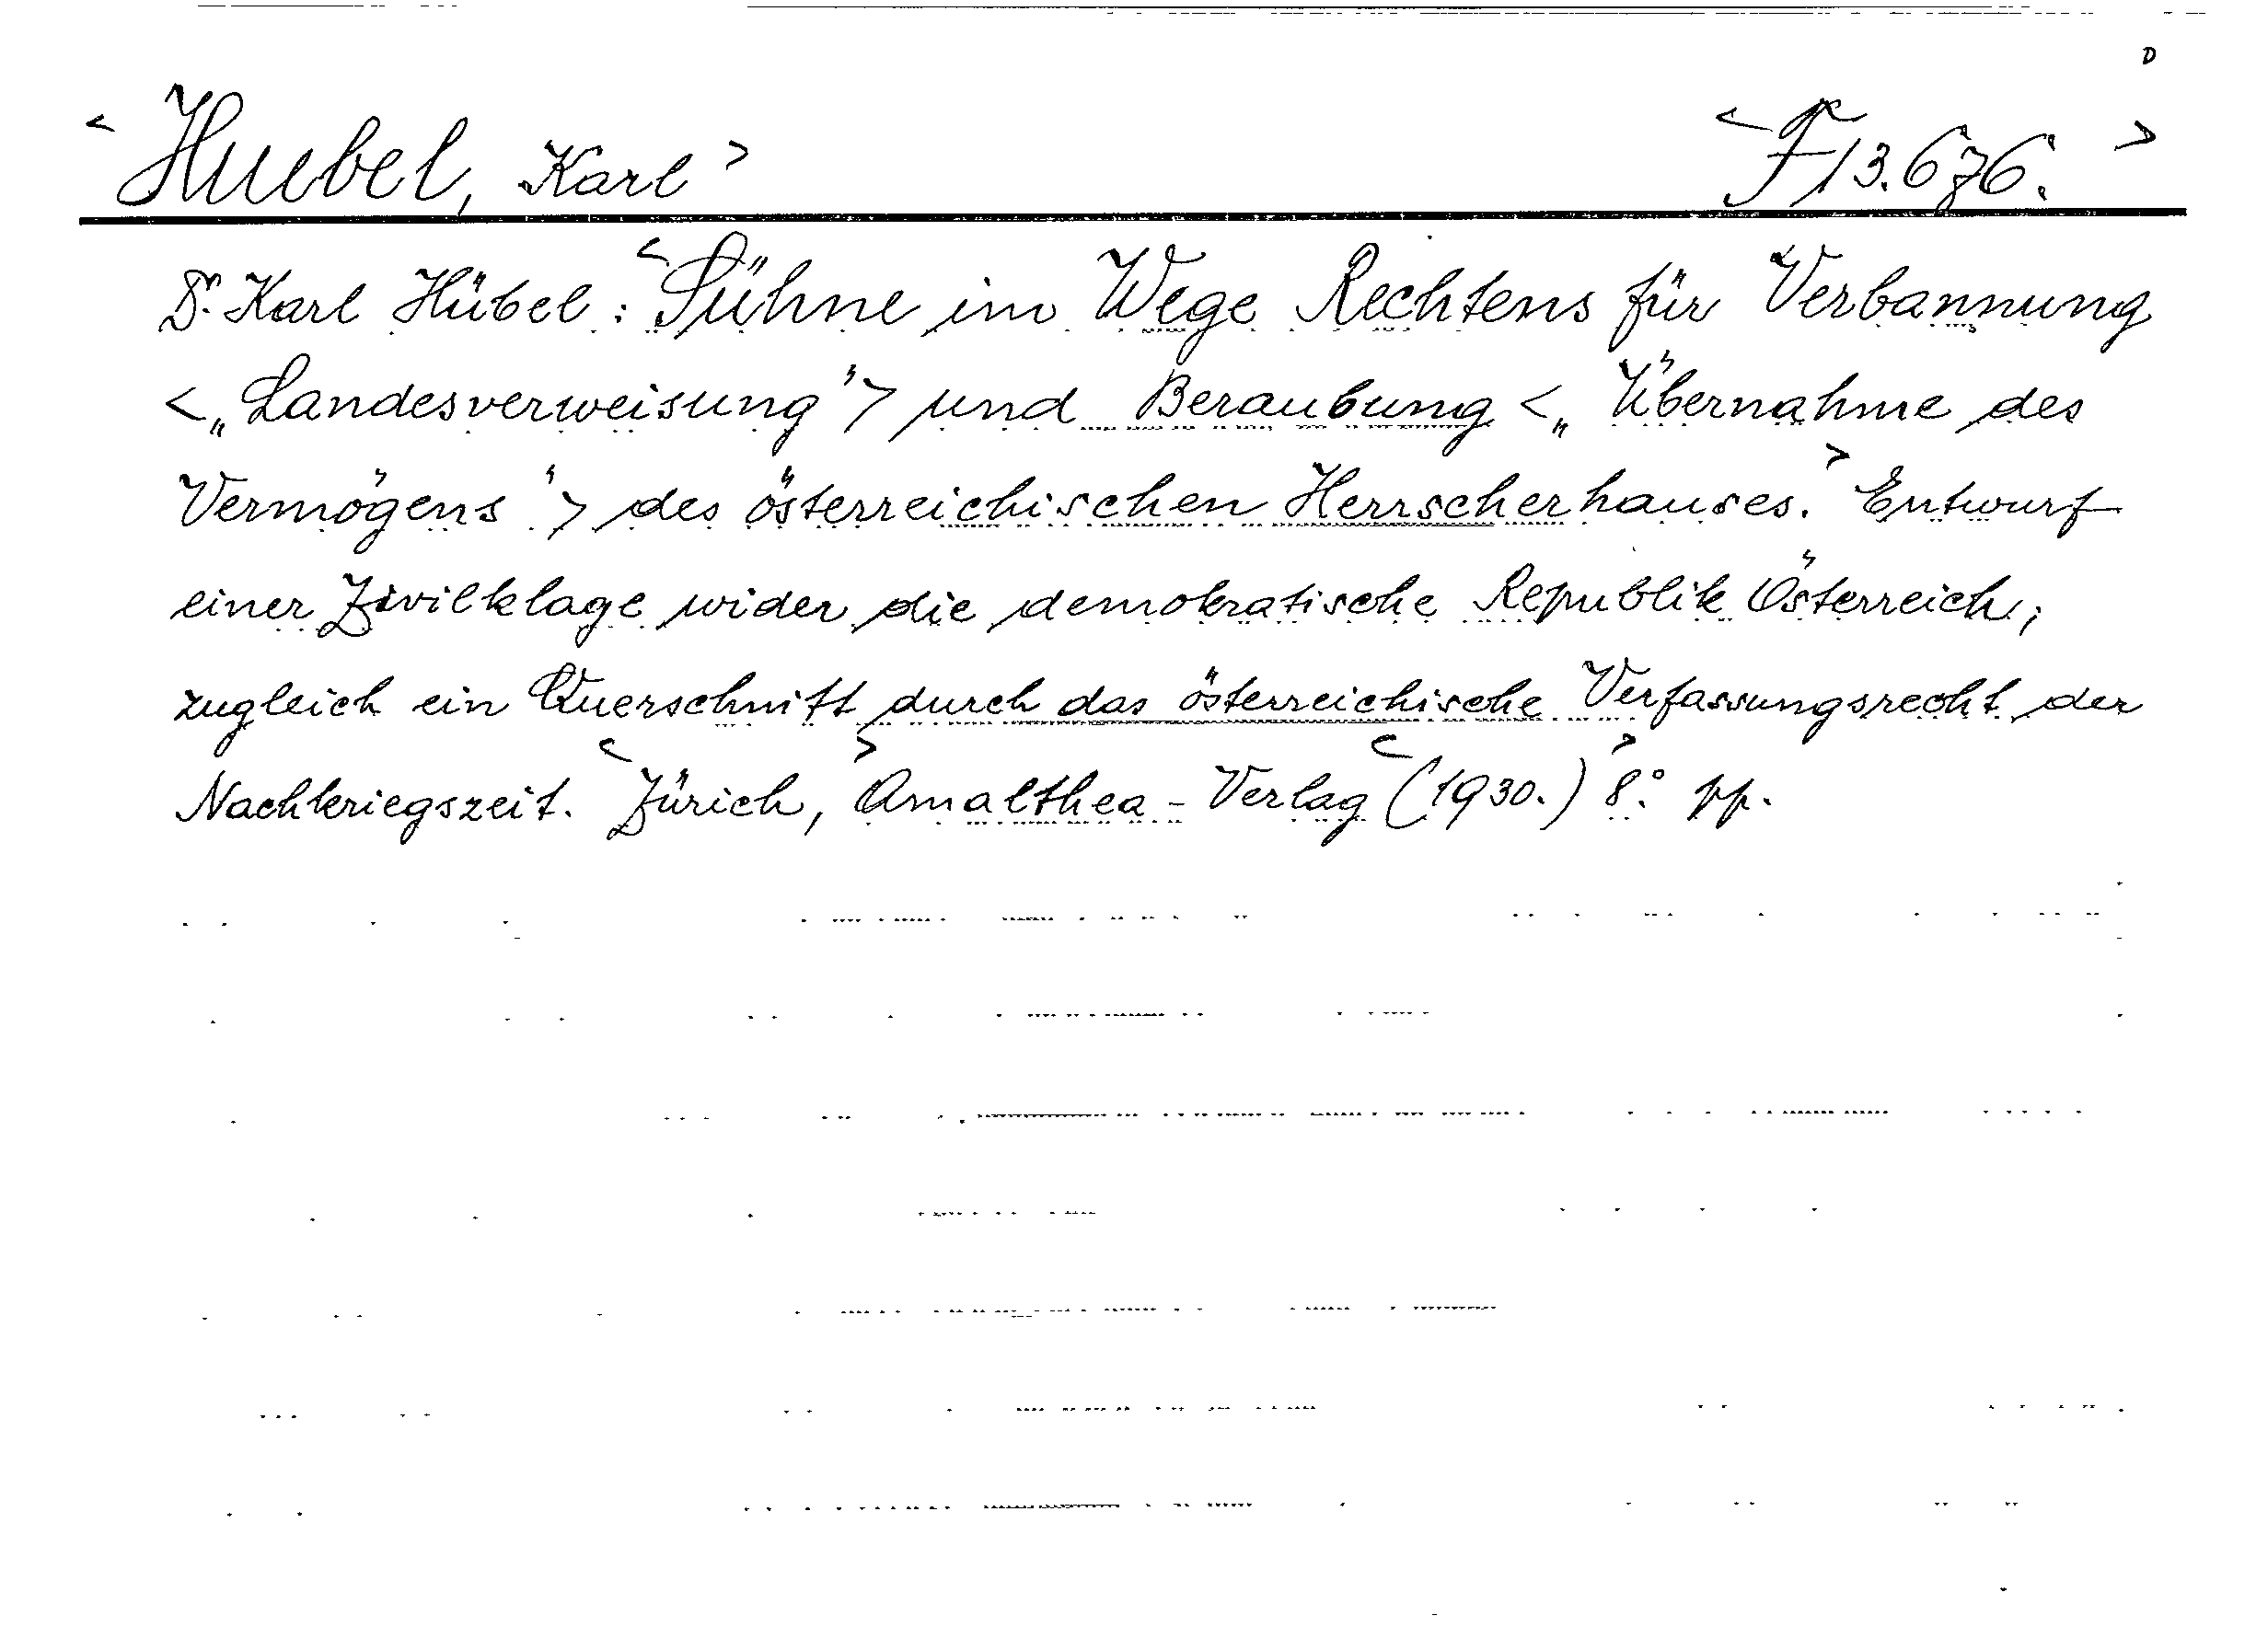 D
< Huebel, Karl > < F 13.676. >
Dr. Karl Hübel: < Sühne im Wege Rechtens für Verbannung
< „Landesverweisung" > und Beraubung < „Übernahme des
Vermögens" > des österreichischen Herrscherhauses. > Entwurf
einer Zivilklage wider die demokratische Republik Österreich;
zugleich ein Querschnitt durch das österreichische Verfassungsrecht der
Nachkriegszeit. < Zürich, > Amalthea-Verlag < (1930.) > 8.° pp.